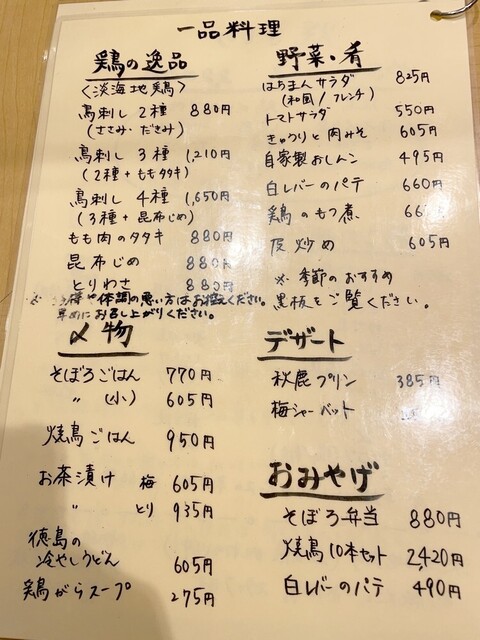 一品料理
鶏の逸品
〈淡海地鶏〉
鳥刺し 2種 880円
(ささみ・だきみ)
鳥刺し 3種 1,210円
(2種+ももタタキ)
鳥刺し 4種 1,650円
(3種+昆布じめ)
もも肉のタタキ 880円
昆布じめ 880円
とりわさ 880円
体調の悪い方はお控えください。
早めにお召し上がりください。
〆物
そぼろごはん 770円
〃 (小) 605円
焼鳥ごはん 950円
お茶漬け 梅 605円
〃 とり 935円
徳島の
冷やしうどん 605円
鶏がらスープ 275円
野菜・肴
はちまんサラダ 825円
(和風/フレンチ)
トマトサラダ 550円
きゅうりと肉みそ 605円
自家製おしんこ 495円
白レバーのパテ 660円
鶏のもつ煮
皮炒め 605円
※季節のおすすめ
黒板をご覧ください。
デザート
秋鹿プリン 385円
梅シャーベット
おみやげ
そぼろ弁当 880円
焼鳥10本セット 2,420円
白レバーのパテ 490円